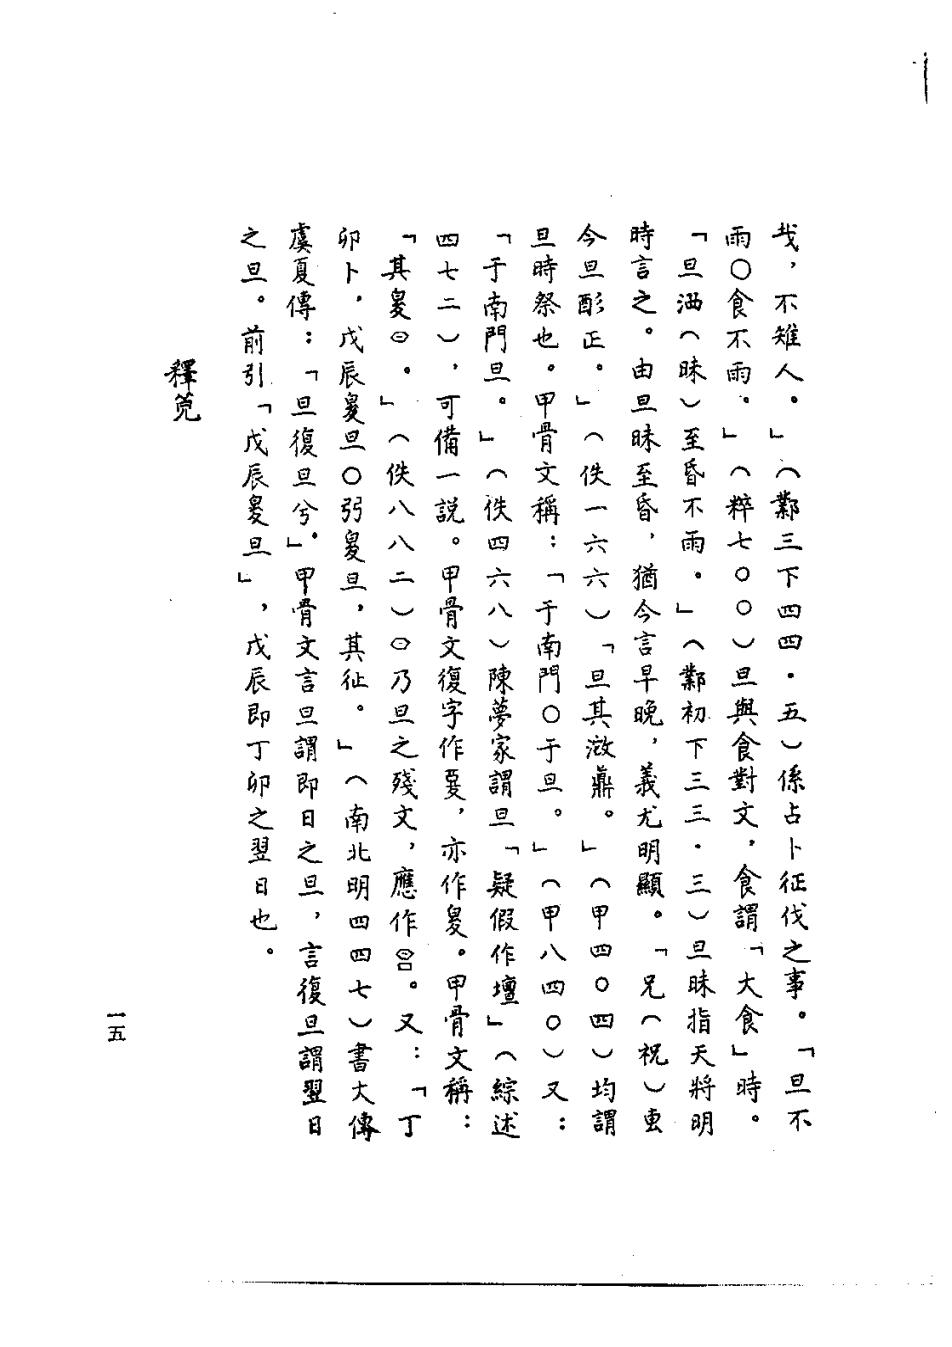 𢦏，不雉人。」（鄴三下四四·五）係占卜征伐之事。「旦不
雨○食不雨。」（粹七○○）旦與食對文，食謂「大食」時。
「旦湎（昧）至昏不雨。」（鄴初下三三·三）旦昧指天將明
時言之。由旦昧至昏，猶今言早晚，義尤明顯。「兄（祝）叀
今旦酌正。」（佚一六六）「旦其潋鼒。」（甲四○四）均謂
旦時祭也。甲骨文稱：「于南門○于旦。」（甲八四○）又：
「于南門旦。」（佚四六八）陳夢家謂旦「疑假作壇」（綜述
四七二），可備一說。甲骨文復字作㚆，亦作㚅。甲骨文稱：
「其㚅。」（佚八八二）乃旦之殘文，應作。又：「丁
卯卜，戊辰㚅旦○弜㚅旦，其征。」（南北明四四七）書大傳
虞夏傳：「旦復旦兮。」甲骨文言旦謂即日之旦，言復旦謂翌日
之旦。前引「戊辰㚅旦」，戊辰即丁卯之翌日也。
釋莧
一五